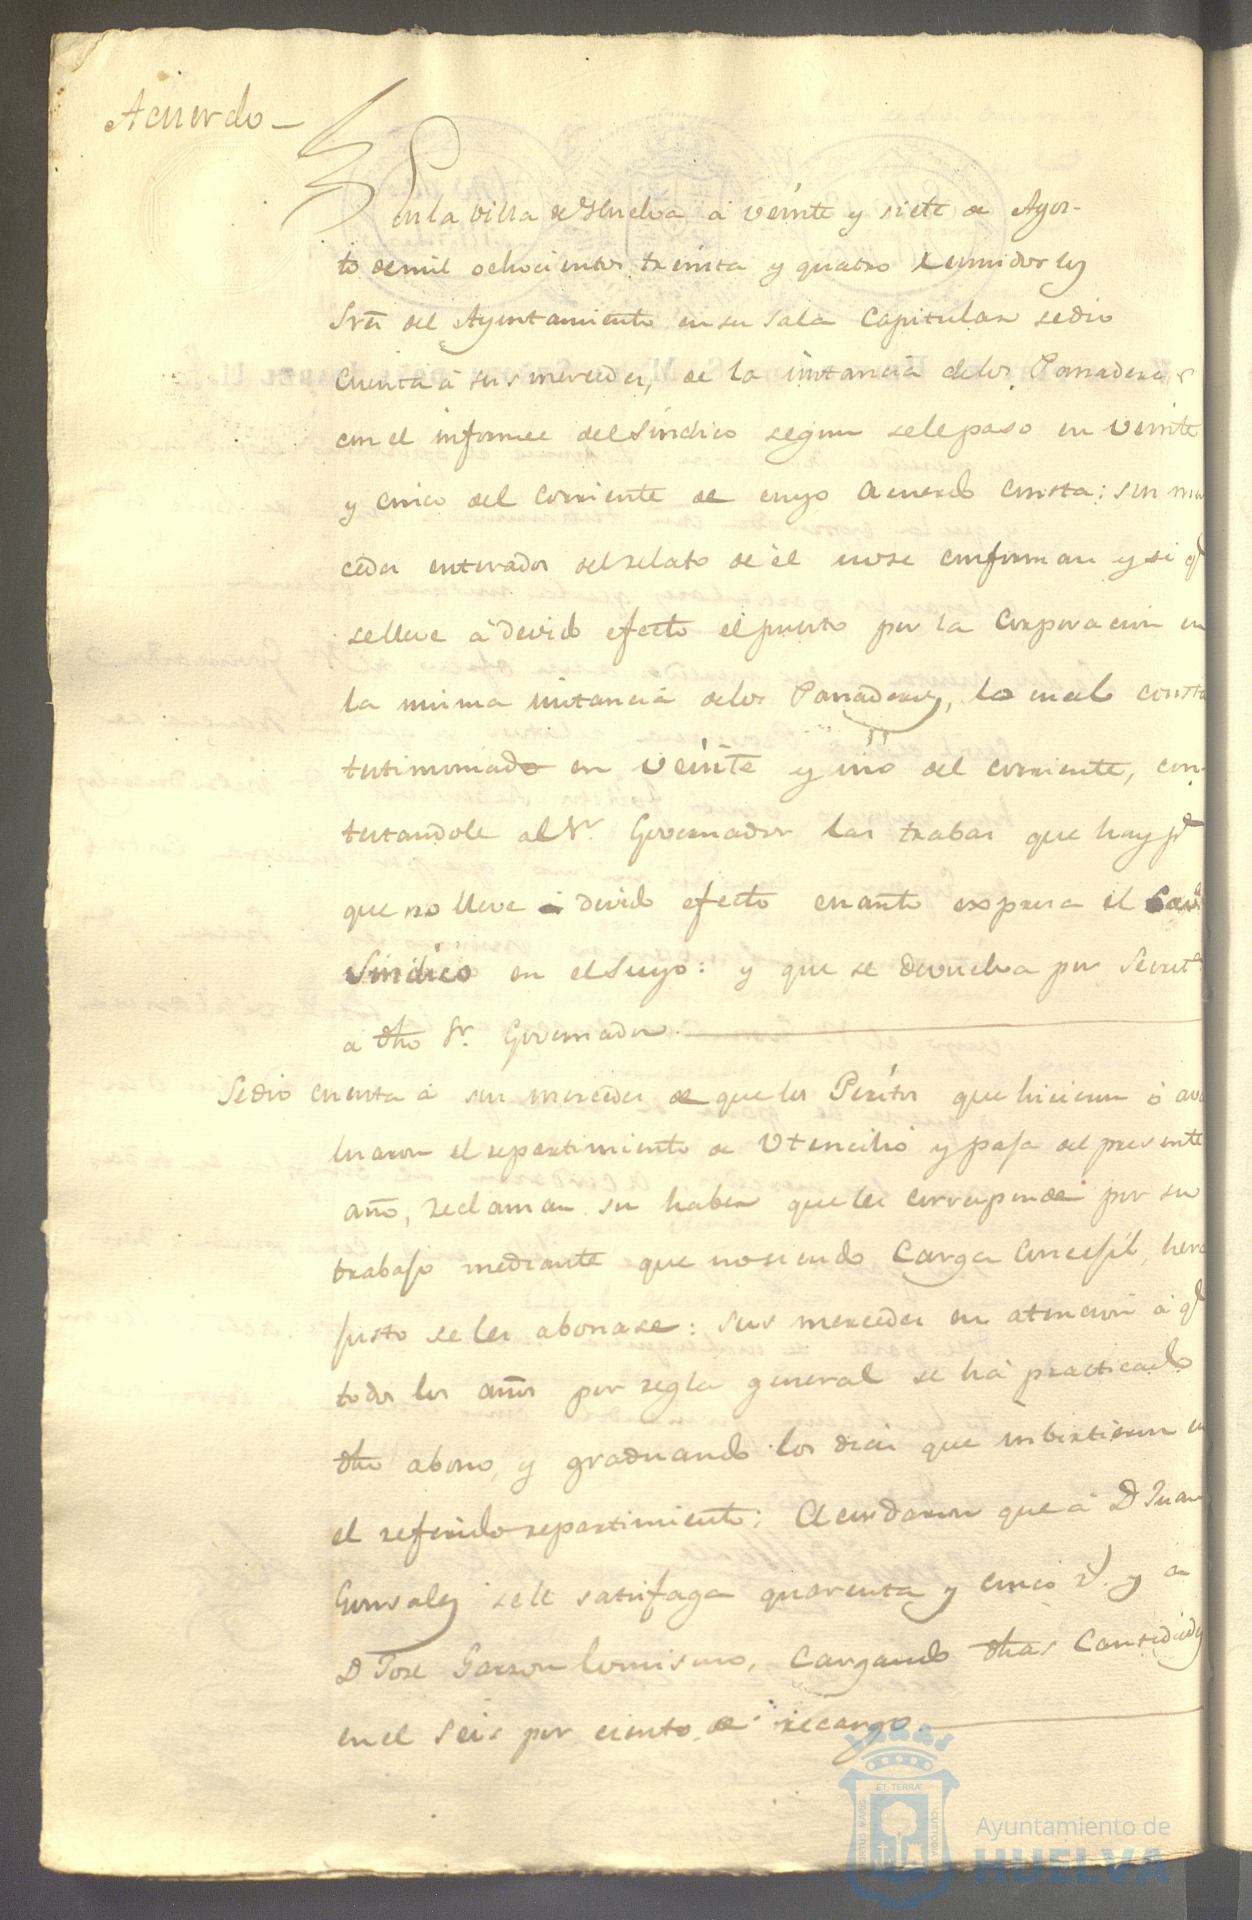 Acuerdo
En la Villa de Huelva a veinte y siete de Agos-
to de mil ochocientos treinta y quatro Reunidos los
Sres del Ayuntamiento en su Sala Capitular se dio
Cuenta á sus mercedes, de la instancia de los Panaderos
con el informe del Sindico segun se le paso en veinte
y cinco del Corriente de cuyo Acuerdo consta: sus mer
cedes enterados del relato de él no se conforman y si qe
se lleve á devido efecto el puesto por la Corporacion en
la misma instancia de los Panaderos, lo cual consta
testimoniado en veinte y uno del corriente, con-
testandole al Sr Governador las trabas que hay pa
que no lleve á devido efecto cuanto expresa el
Sindico en el Suyo: y que se devuelva por Secreta
a dho Sr. Governador.
Se dio cuenta á sus mercedes de que los Peritos que hicieron ó ava
luaron el repartimiento de Utencilio y paja del presente
año, reclaman su haber que les corresponde por su
trabajo mediante que no siendo Carga Concejil, hera
justo se les abonase: sus mercedes en atencion á qe
todos los años por regla general se há practicado
dho abono, y graduando los dias que imbirtieron en
el referido repartimiento: Acordaron que á D Juan
Gonsales se le satisfaga quarenta y cinco rs. y a
D Jose Garzon lo mismo, Cargando dhas Cantidades
en el Seis por ciento de recargo.
ET TERRA
Ayuntamiento de
HUELVA